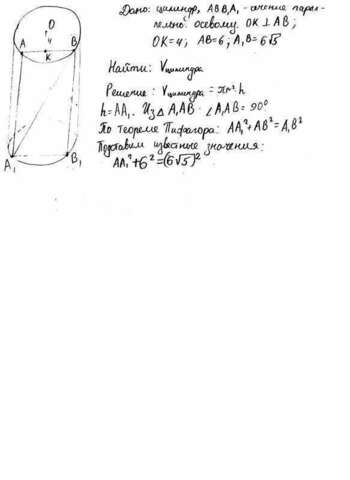 Дано: цилиндр, ABB₁A₁ - сечение парал-
лельно осевому. OK ⊥ AB;
OK=4; AB=6; A₁B=6√5
Найти: Vцилиндра
Решение: Vцилиндра = πr²·h
h=AA₁. Из △ A₁AB ∠A₁AB = 90°
По теореме Пифагора: AA₁²+AB²=A₁B²
Подставим известные значения:
AA₁²+6²=(6√5)²
O
4
A
B
K
A₁
B₁